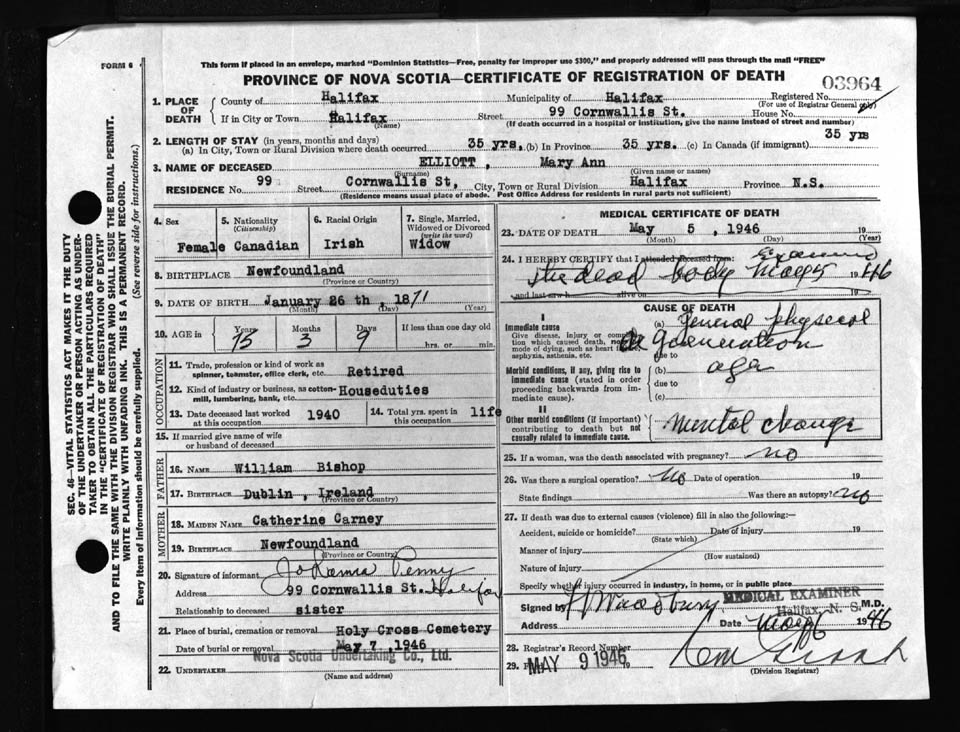 FORM 6
This form if placed in an envelope, marked "Dominion Statistics—Free, penalty for improper use $300," and properly addressed will pass through the mail "FREE"
PROVINCE OF NOVA SCOTIA—CERTIFICATE OF REGISTRATION OF DEATH
03964
1. PLACE OF DEATH
County of Halifax Municipality of Halifax Registered No.
(For use of Registrar General only)
If in City or Town Halifax Street 99 Cornwallis St. House No.
(Name) (If death occurred in a hospital or institution, give the name instead of street and number)
2. LENGTH OF STAY (in years, months and days)
(a) In City, Town or Rural Division where death occurred 35 yrs. (b) In Province 35 yrs. (c) In Canada (if immigrant) 35 yrs
3. NAME OF DECEASED ELLIOTT, Mary Ann
(Surname) (Given name or names)
RESIDENCE No. 99 Street Cornwallis St, City, Town or Rural Division Halifax Province N.S.
(Residence means usual place of abode. Post Office Address for residents in rural parts not sufficient)
4. Sex Female
5. Nationality (Citizenship) Canadian
6. Racial Origin Irish
7. Single, Married, Widowed or Divorced (write the word) Widow
8. BIRTHPLACE Newfoundland
(Province or Country)
9. DATE OF BIRTH January 26 th, 1871
(Month) (Day) (Year)
10. AGE in Years 75 Months 3 Days 9 If less than one day old hrs. or min.
OCCUPATION
11. Trade, profession or kind of work as spinner, teamster, office clerk, etc. Retired
12. Kind of industry or business, as cotton-mill, lumbering, bank, etc. Houseduties
13. Date deceased last worked at this occupation 1940
14. Total yrs. spent in this occupation life
15. If married give name of wife or husband of deceased
FATHER
16. NAME William Bishop
17. BIRTHPLACE Dublin, Ireland
(Province or Country)
MOTHER
18. MAIDEN NAME Catherine Carney
19. BIRTHPLACE Newfoundland
(Province or Country)
20. Signature of informant Penny
Address 99 Cornwallis St. Halifax
Relationship to deceased sister
21. Place of burial, cremation or removal Holy Cross Cemetery
Date of burial or removal May 7, 1946
22. UNDERTAKER Nova Scotia Undertaking Co., Ltd.
(Name and address)
MEDICAL CERTIFICATE OF DEATH
23. DATE OF DEATH May 5, 1946 19
(Month) (Day) (Year)
24. I HEREBY CERTIFY that I attended deceased from: Examined
the dead body May 1946
and last saw h alive on 19
CAUSE OF DEATH
I
Immediate cause
Give disease, injury or complication which caused death, not the mode of dying, such as heart failure, asphyxia, asthenia, etc.
(a) General physical degeneration
due to
Morbid conditions, if any, giving rise to immediate cause (stated in order proceeding backwards from immediate cause).
(b) age
due to
(c)
II
Other morbid conditions (if important) contributing to death but not causally related to immediate cause.
Mental change
25. If a woman, was the death associated with pregnancy? no
26. Was there a surgical operation? no Date of operation 19
State findings Was there an autopsy? no
27. If death was due to external causes (violence) fill in also the following:—
Accident, suicide or homicide? Date of injury 19
(State which)
Manner of injury
(How sustained)
Nature of injury
Specify whether injury occurred in industry, in home, or in public place
Signed by M.D.
MEDICAL EXAMINER
Halifax, N. S.
Address Date 1946
28. Registrar's Record Number
29. MAY 9 1946
(Division Registrar)
SEC. 46—VITAL STATISTICS ACT MAKES IT THE DUTY
OF THE UNDERTAKER OR PERSON ACTING AS UNDER-
TAKER TO OBTAIN ALL THE PARTICULARS REQUIRED
IN THE "CERTIFICATE OF REGISTRATION OF DEATH"
AND TO FILE THE SAME WITH THE DIVISION REGISTRAR WHO SHALL ISSUE THE BURIAL PERMIT.
WRITE PLAINLY WITH UNFADING INK. THIS IS A PERMANENT RECORD.
Every item of information should be carefully supplied. (See reverse side for instructions.)